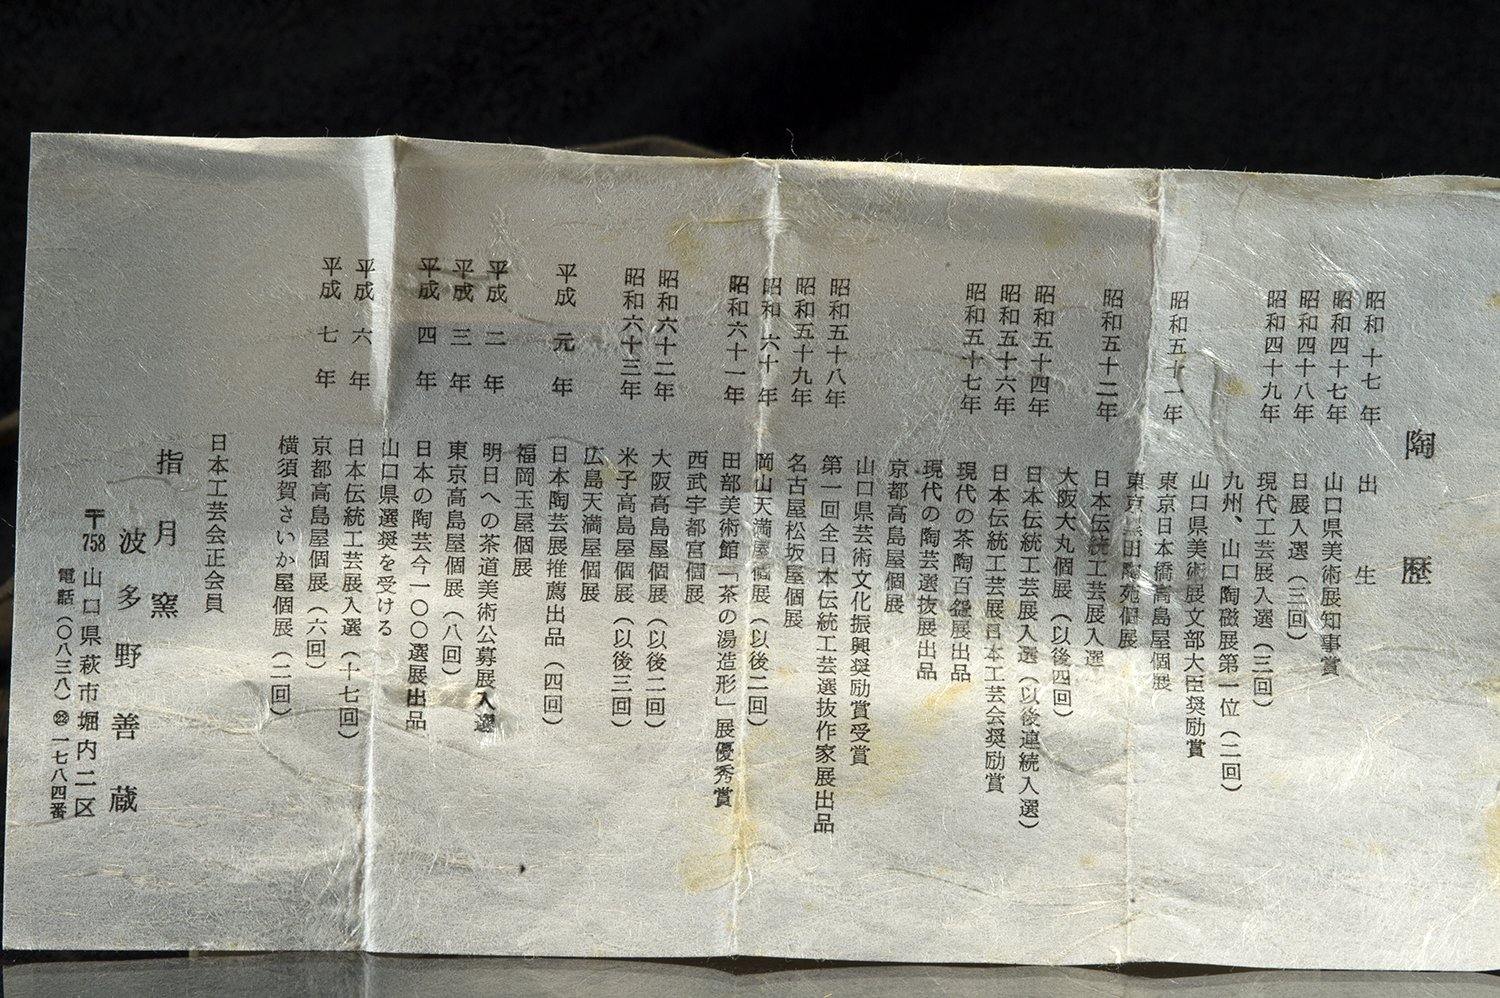 陶歴
昭和十七年 出生
昭和四十七年 山口県美術展知事賞
昭和四十八年 日展入選（三回）
昭和四十九年 現代工芸展入選（三回）
九州、山口陶磁展第一位（二回）
山口県美術展文部大臣奨励賞
昭和五十一年 東京日本橋高島屋個展
東京黒田陶苑個展
昭和五十二年 日本伝統工芸展入選
大阪大丸個展（以後四回）
昭和五十四年 日本伝統工芸展入選（以後連続入選）
昭和五十六年 日本伝統工芸展日本工芸会奨励賞
昭和五十七年 現代の茶陶百盌展出品
現代の陶芸選抜展出品
京都高島屋個展
山口県芸術文化振興奨励賞受賞
昭和五十八年 第一回全日本伝統工芸選抜作家展出品
昭和五十九年 名古屋松坂屋個展
昭和六十年 岡山天満屋個展（以後二回）
昭和六十一年 田部美術館「茶の湯造形」展優秀賞
西武宇都宮個展
昭和六十二年 大阪高島屋個展（以後二回）
昭和六十三年 米子高島屋個展（以後三回）
広島天満屋個展
平成元年 日本陶芸展推薦出品（四回）
福岡玉屋個展
平成二年 明日への茶道美術公募展入選
平成三年 東京高島屋個展（八回）
平成四年 日本の陶芸今一〇〇選展出品
山口県選奨を受ける
平成六年 日本伝統工芸展入選（十七回）
平成七年 京都高島屋個展（六回）
横須賀さいか屋個展（二回）
日本工芸会正会員
指月窯
波多野善蔵
〒758 山口県萩市堀内二区
電話（〇八三八）㉒一七八四番